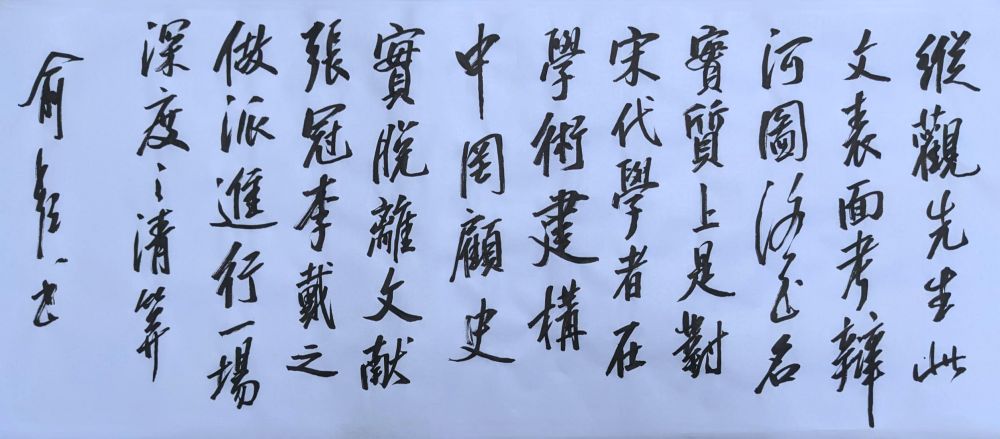 縱觀先生此
文表面考辯
河圖洛書名
實質上是對
宋代學者在
學術建構
中罔顧史
實脫離文献
張冠李戴之
做派進行一場
深度之清算
俞